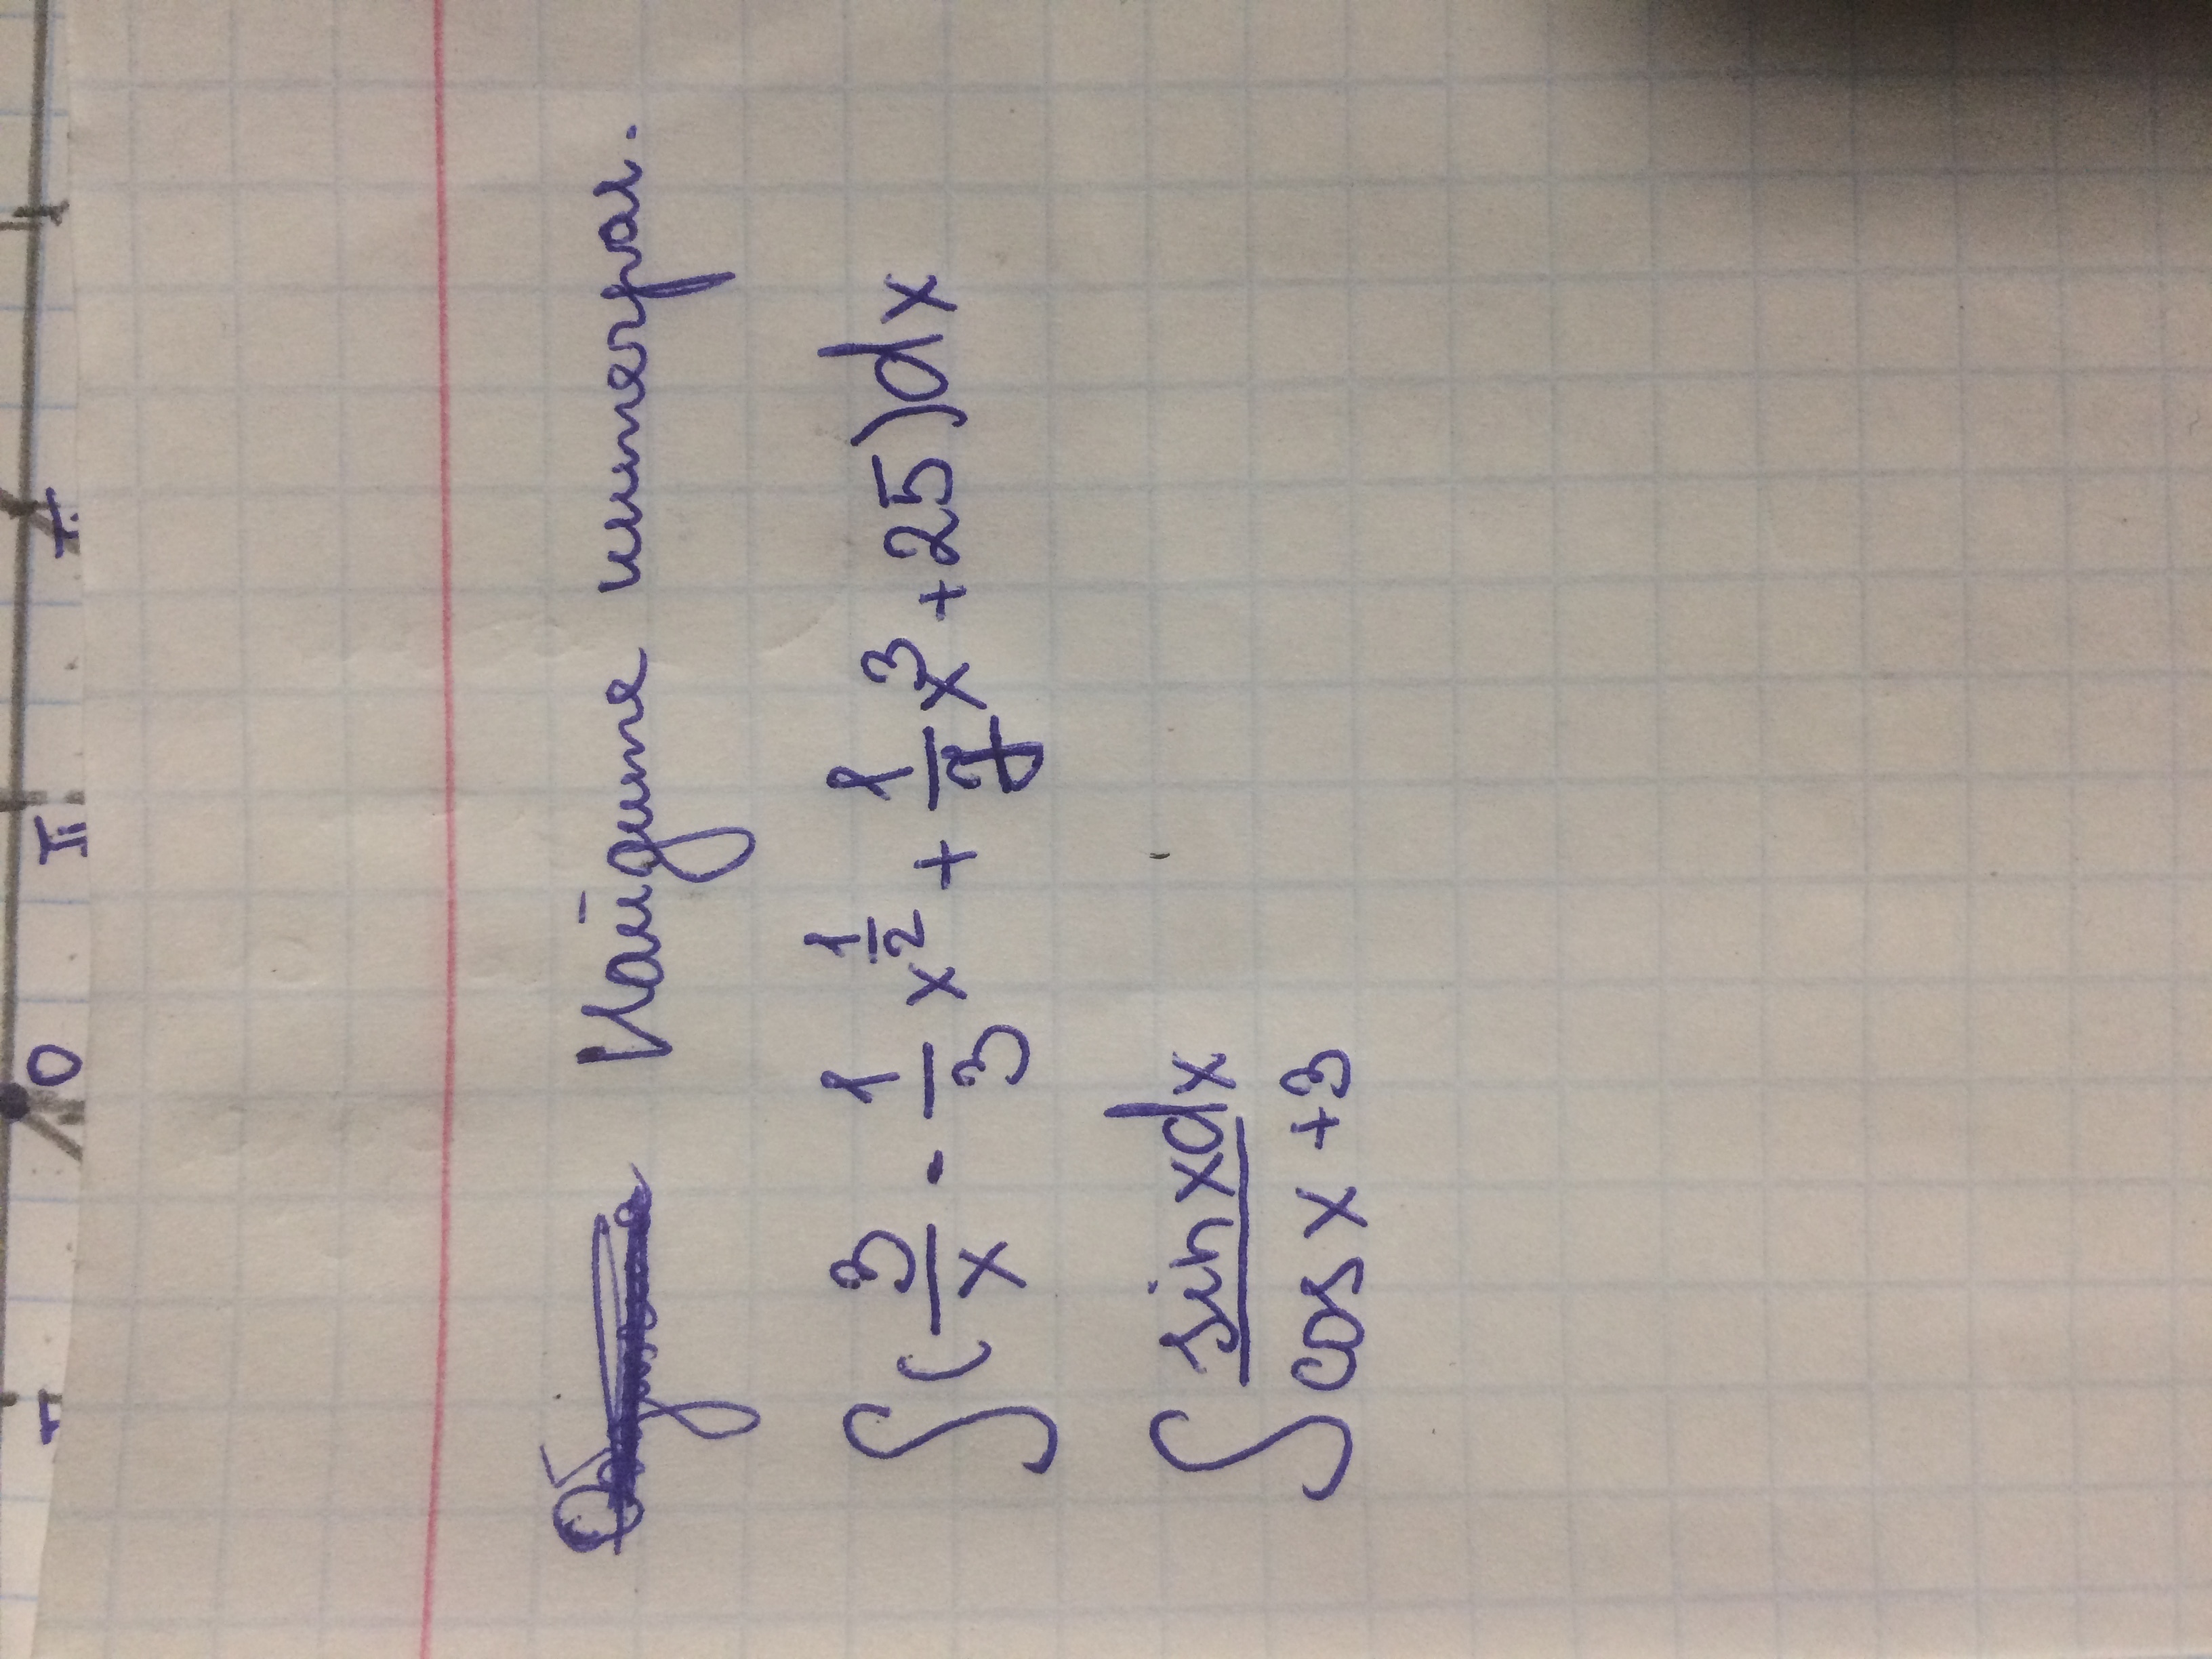 0 II
Найдите интеграл.
∫(3/x · 1/3 x^(1/2) + 1/7 x^3 + 25)dx
∫ sin xdx / cos x + 3